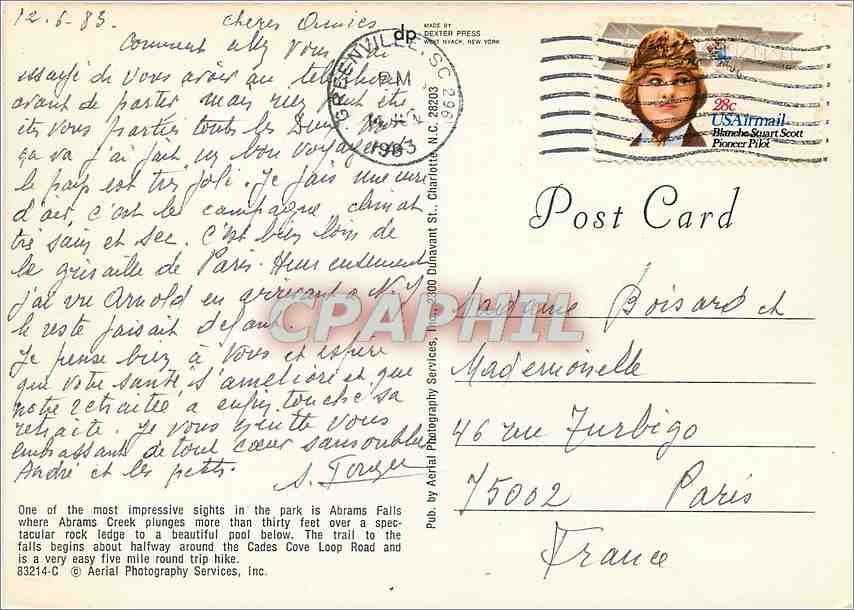 12.6-83. Chères Amies
Comment allez vous
essayé de vous avoir au téléphone
avant de partir mais rien
êtes vous parties toutes les Deux
ça va j'ai fait un bon voyage
le pays est très joli. Je fais une cure
d'air, c'est la campagne climat
très sain et sec. C'est bien loin de
la grisaille de Paris. Heureusement
j'ai vu Arnold en arrivant à N.Y
le reste faisait défaut.
Je pense bien à Vous et espère
que votre santé s'améliore et que
notre retraitée a enfin touché sa
retraite. Je vous quitte Vous
embrassant de tout cœur sans oublier
André et les petits.
One of the most impressive sights in the park is Abrams Falls
where Abrams Creek plunges more than thirty feet over a spec-
tacular rock ledge to a beautiful pool below. The trail to the
falls begins about halfway around the Cades Cove Loop Road and
is a very easy five mile round trip hike.
83214-C © Aerial Photography Services, Inc.
dp
MADE BY
DEXTER PRESS
WEST NYACK, NEW YORK
GREENVILLE, SC 296
PM
1983
Pub. by Aerial Photography Services, Inc., 2300 Dunavant St., Charlotte, N.C. 28203
28c
USAirmail
Blanche Stuart Scott
Pioneer Pilot
Post Card
CPAPHIL
Madame Boisard et
Mademoiselle
46 rue Turbigo
75002 Paris
France